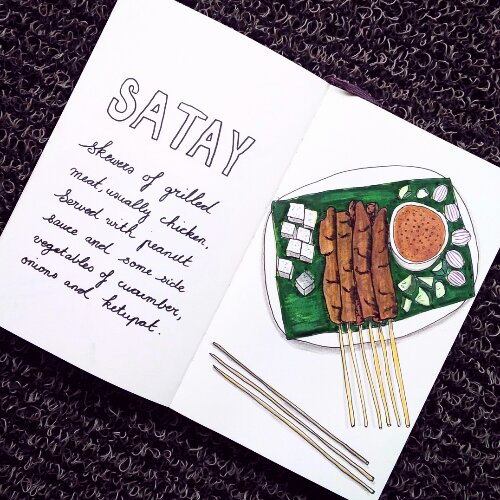 SATAY
Skewers of grilled
meat, usually chicken.
Served with peanut
sauce and some side
vegetables of cucumber,
onions and ketupat.